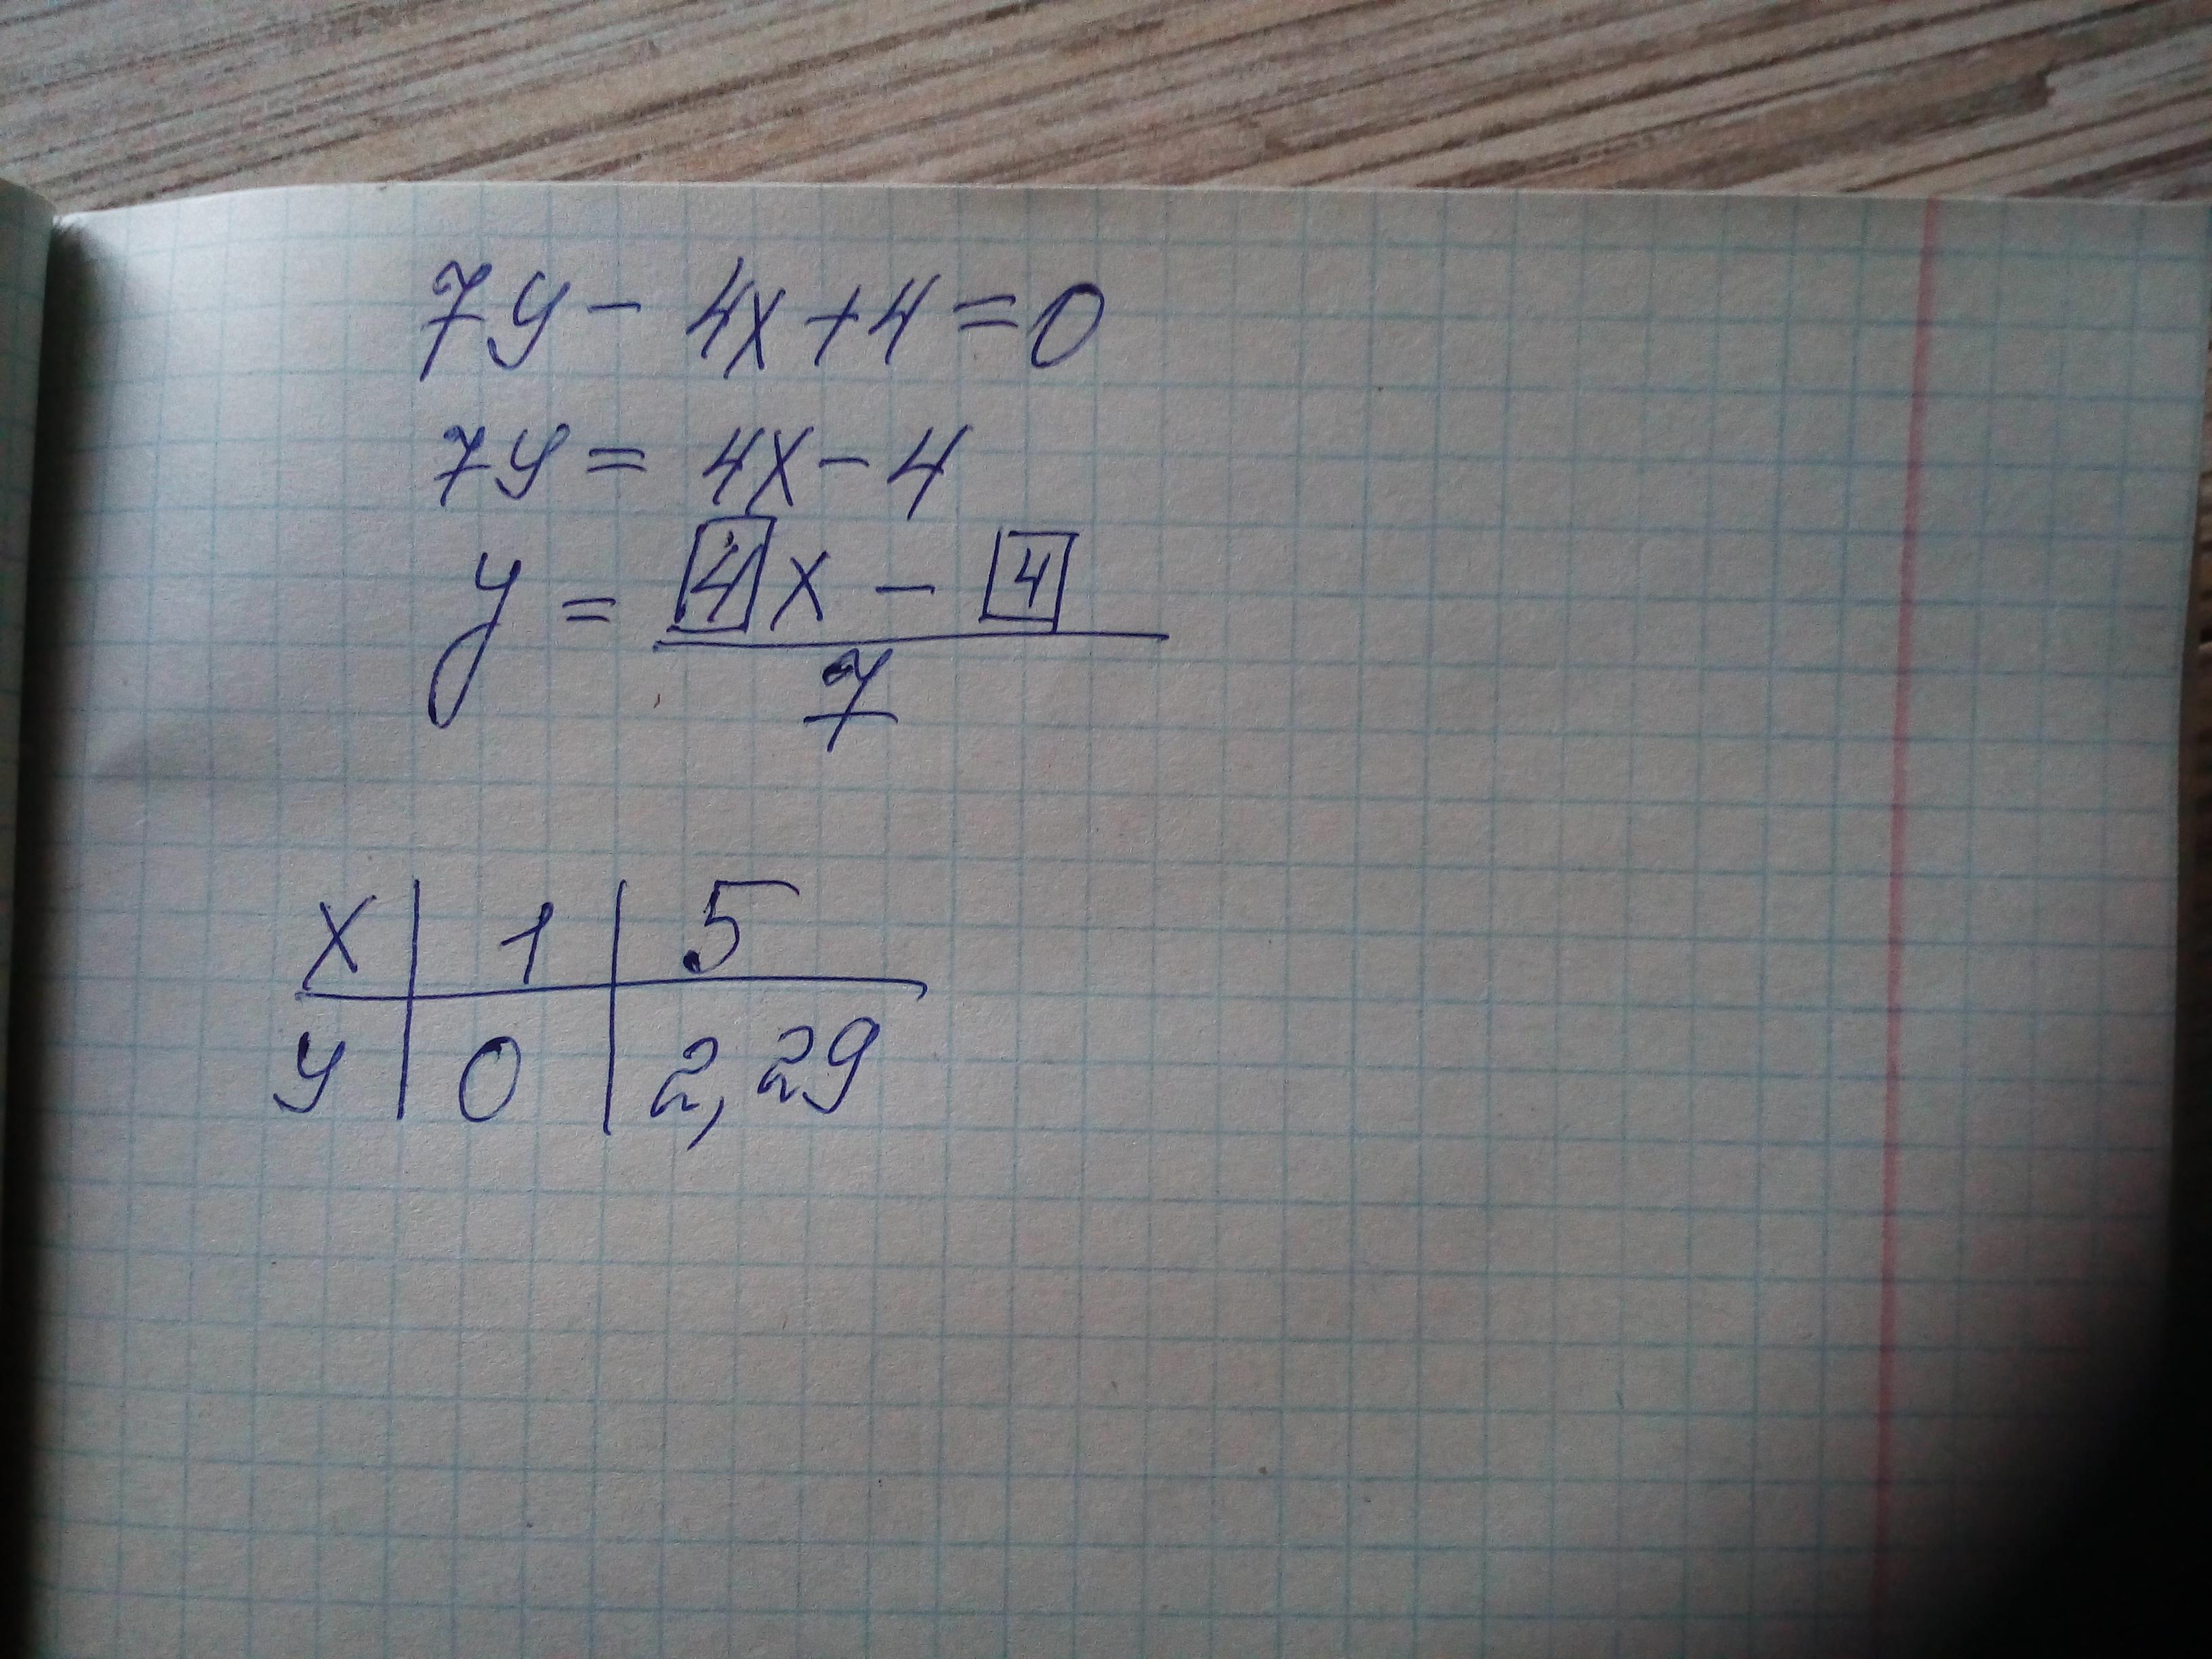 7y - 4x + 4 = 0
7y = 4x - 4
y = 4x - 4
7
x | 1 | 5
y | 0 | 2,29